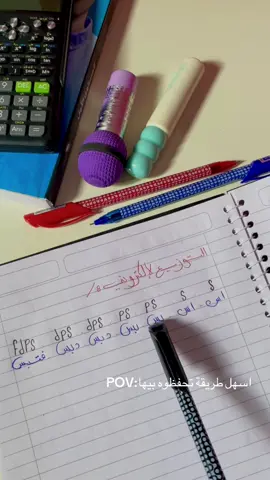 التوزيع الإلكتروني /ه
S S PS PS dPS dPS FdPS
اس اس بس بس دبس دبس فدبس
POV: اسهل طريقة تحفظوه بيها
DEL AC